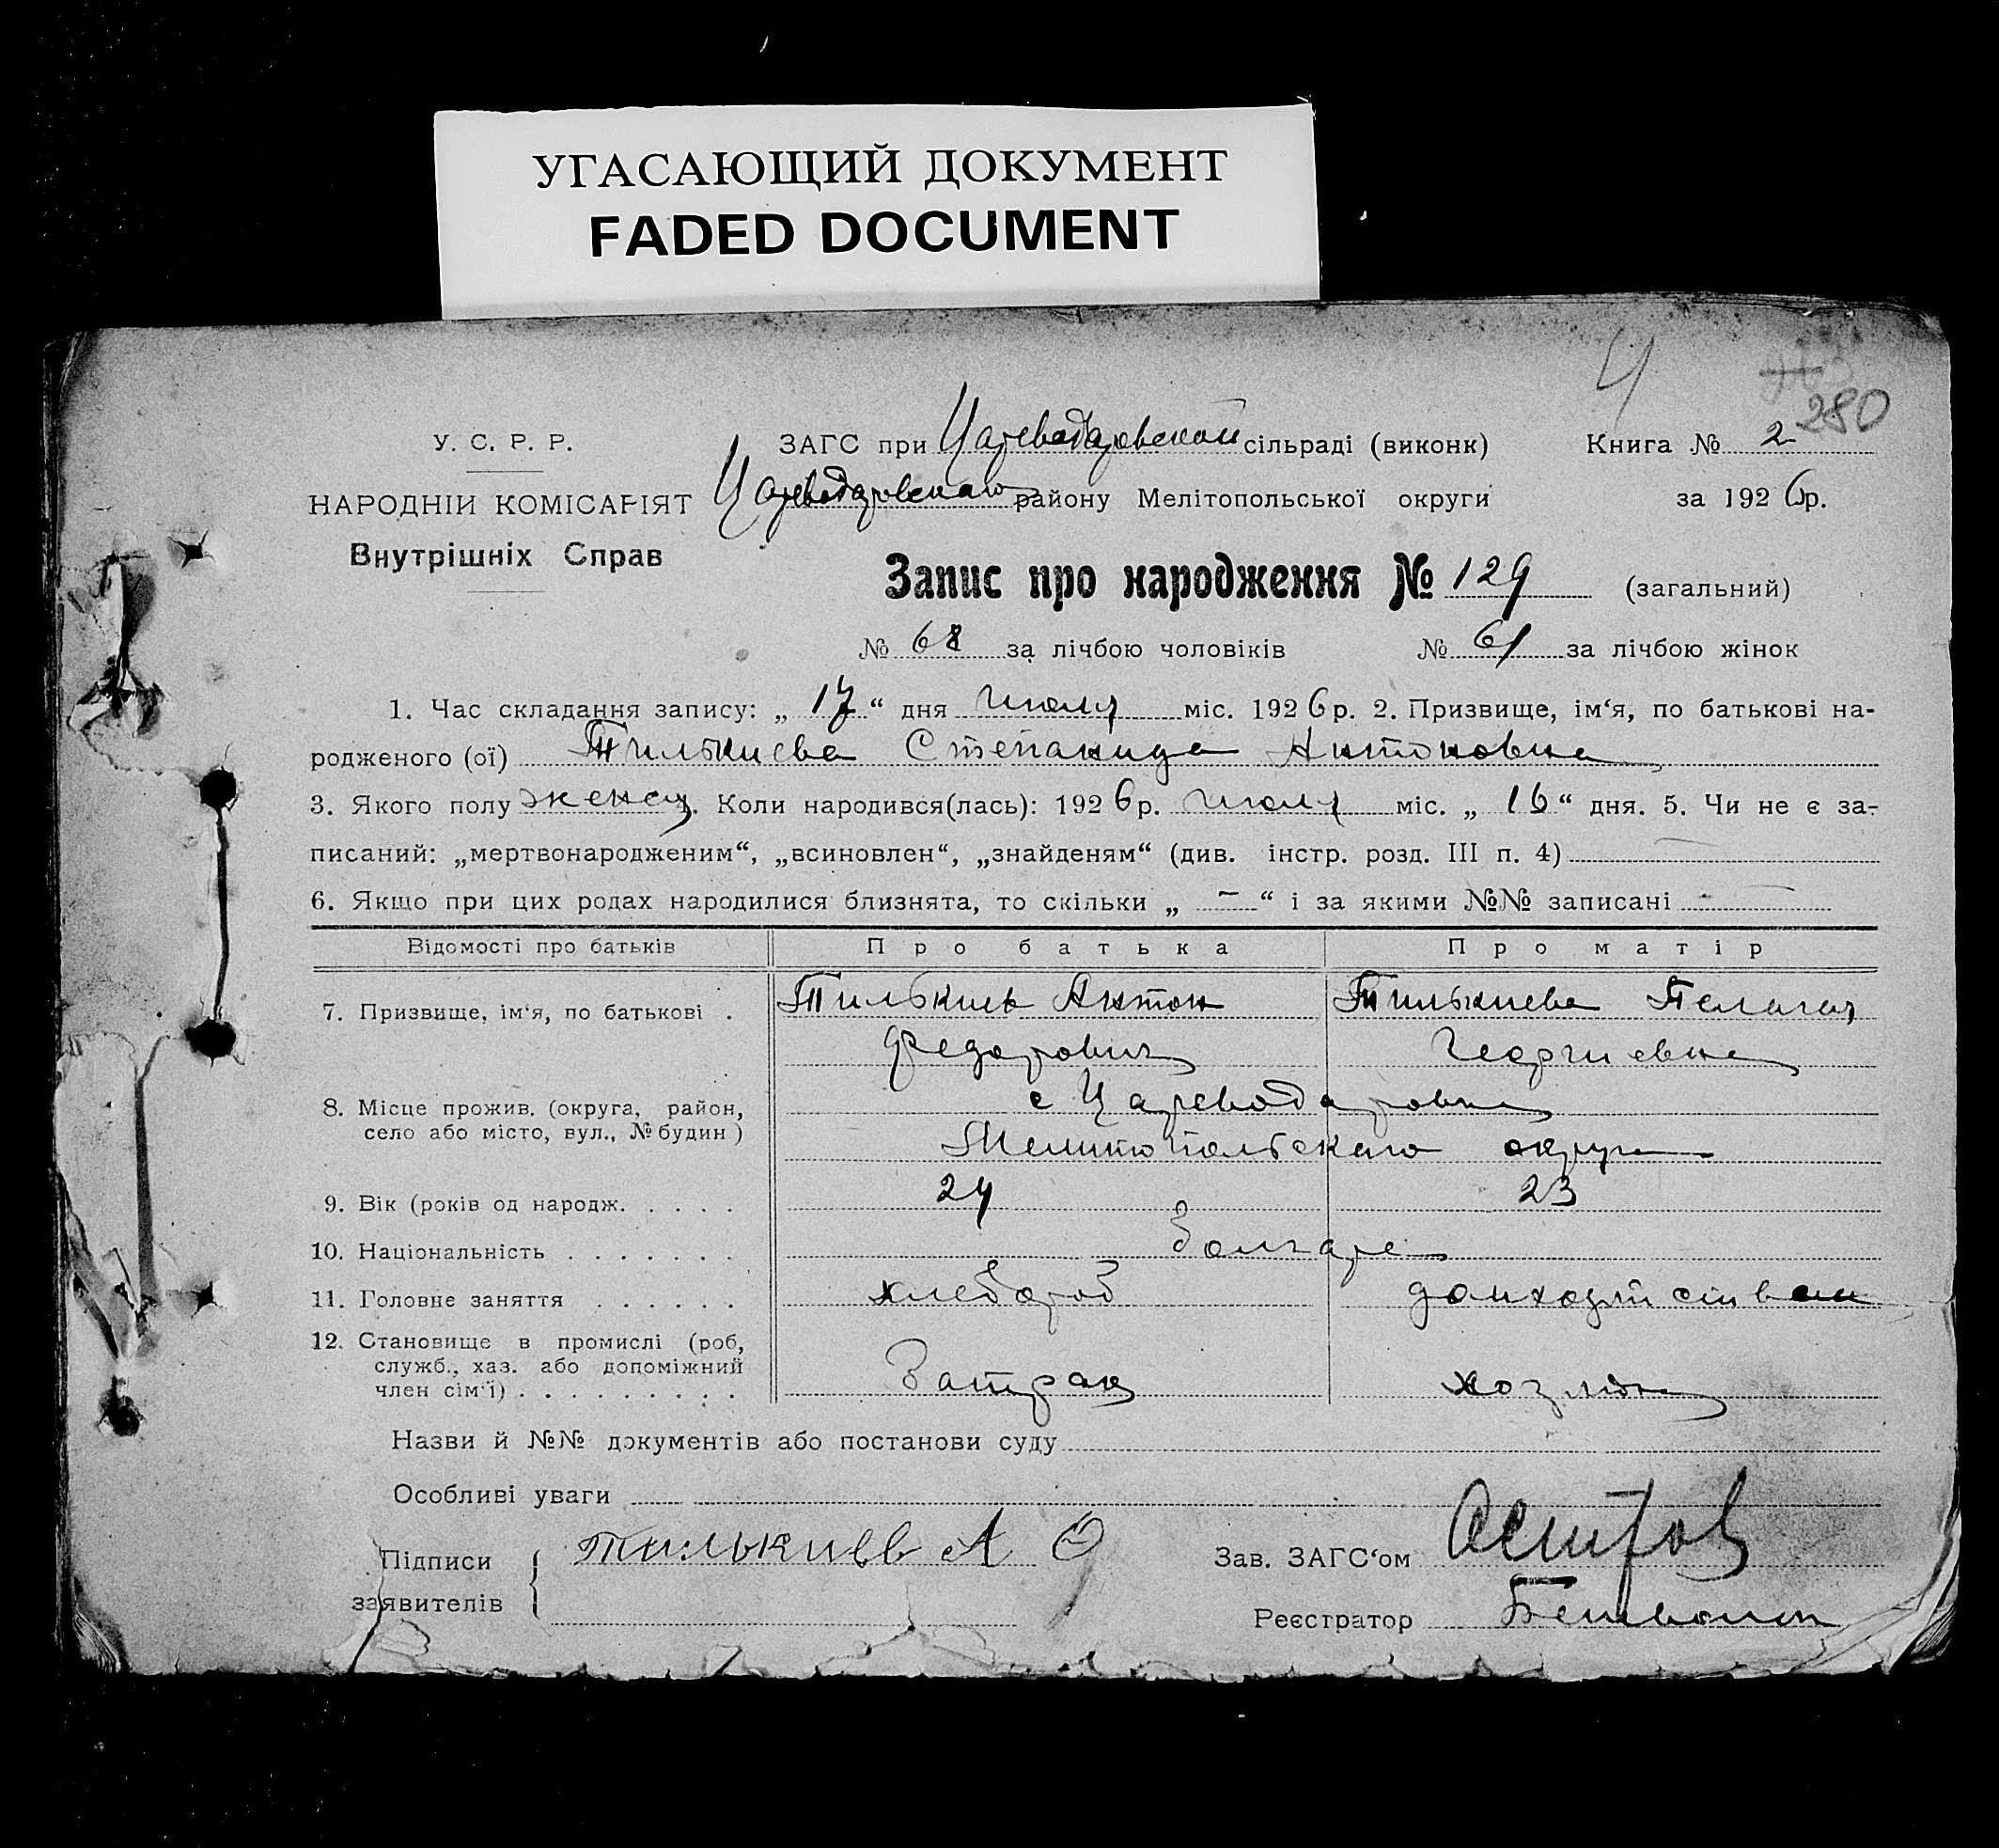 УГАСАЮЩИЙ ДОКУМЕНТ
FADED DOCUMENT
280
У. С. Р. Р.
ЗАГС при Цареводаровской сільраді (виконк)
Книга № 2
НАРОДНІЙ КОМІСАРІЯТ
Цареводаровского району Мелітопольської округи
за 1926 р.
Внутрішніх Справ
Запис про народження № 129 (загальний)
№ 68 за лічбою чоловіків № 61 за лічбою жінок
1. Час складання запису: „ 17 “ дня июля міс. 1926 р. 2. Призвище, ім‘я, по батькові на-
родженого (ої) Тилькиева Степанида Антоновна
3. Якого полу женск. Коли народився(лась): 1926 р. июля міс. „ 16 “ дня. 5. Чи не є за-
писаний: „мертвонародженим“, „всиновлен“, „знайденям“ (див. інстр. розд. III п. 4) —
6. Якщо при цих родах народилися близнята, то скільки „ — “ і за якими №№ записані —
Відомості про батьків Про батька Про матір
7. Призвище, ім‘я, по батькові . Тилькиев Антон Тилькиева Пелагия
Федорович Георгиевна
8. Місце прожив. (округа, район, с Цареводаровка
село або місто, вул., № будин) Мелитопольского округа
9. Вік (років од народж. . . . . 24 23
10. Національність . . . . . . . болгаре
11. Головне заняття . . . . . . хлебороб
12. Становище в промислі (роб,
служб., хаз. або допоміжний
член сім‘ї) . . . . . . . . . Батрак хозяйка
Назви й №№ документів або постанови суду
Особливі уваги
Підписи Тилькиев А Ф
заявителів
Зав. ЗАГС‘ом
Реєстратор